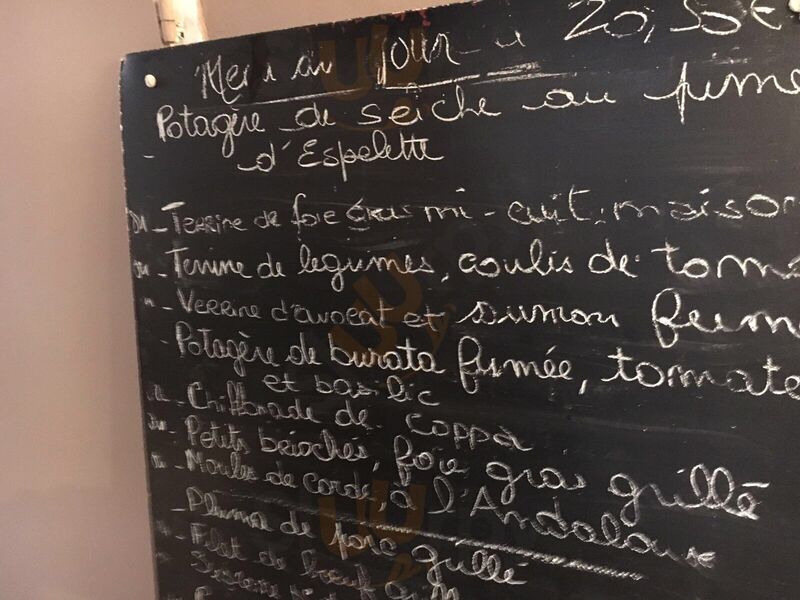 Menu du jour 20,50€
Potagère de seiche au pime
d'Espelette
Terrine de foie gras mi-cuit maison
Terrine de legumes, coulis de toma
Verrine d'avocat et saumon fum
Potagère de burata fumée, tomate
et basilic
Chiffonade de coppa
Petits briochés, foie gras grillé
Moules de corde, à l'Andalouse
Pluma de porc grillé
Filet de boeuf